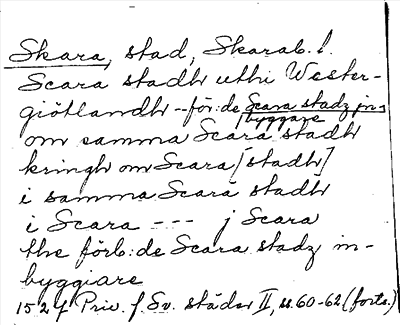 Skara, stad, Skarab. l.
Scara stadh uthi Wester-
giötlandh -- för:de Scara stadz in-
byggare
om samma Scara stadh
kringh om Scara [stadh]
i samma Scara stadh
i Scara --- j Scara
the förb:de Scara stadz in-
byggiare
1527 Priv. f. Sv. städer II, ss. 60-62 (forts.)